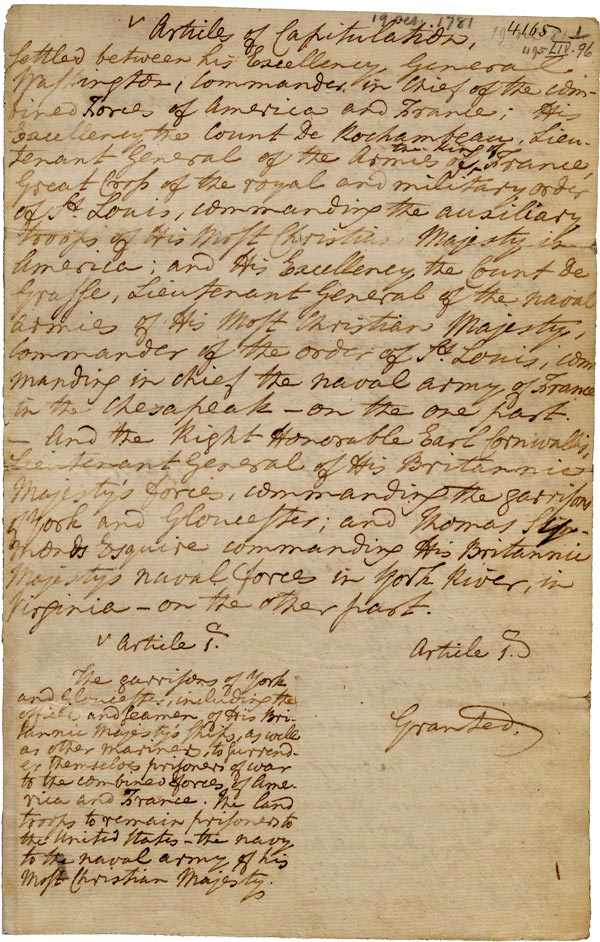 19 Oct. 1781
4165
1
495 LIV. 96
Articles of Capitulation,
settled between his Excellency General
Washington, Commander in Chief of the com-
bined Forces of America and France; His
Excellency the Count de Rochambeau, Lieu-
tenant General of the Armies of the King of France,
Great Cross of the royal and military order
of St. Louis, commanding the auxiliary
troops of His Most Christian Majesty in
America; and His Excellency the Count de
Grasse, Lieutenant General of the naval
armies of His Most Christian Majesty,
Commander of the order of St. Louis, com
manding in chief the naval army of France
in the Chesapeak – on the one part.
– And the Right Honorable Earl Cornwallis,
Lieutenant General of His Britannic
Majesty's forces, commanding the garrisons
of York and Gloucester; and Thomas Sy-
monds Esquire commanding His Britannic
Majesty's naval forces in York River, in
Virginia – on the other part.
Article 1.
The garrisons of York
and Gloucester, including the
officers and seamen of His Bri-
tannic Majesty's ships, as well
as other mariners, to surrend-
er themselves prisoners of war
to the combined forces of Ame-
rica and France. The land
troops to remain prisoners to
the United States – the navy
to the naval army of his
Most Christian Majesty.
Article 1.
Granted.